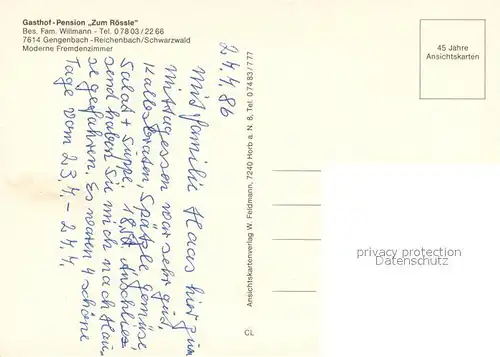 Gasthof-Pension „Zum Rössle"
Bes. Fam. Willmann - Tel. 0 78 03 / 22 66
7614 Gengenbach - Reichenbach/Schwarzwald
Moderne Fremdenzimmer
45 Jahre
Ansichtskarten
24.4.86
Mit Familie Haas hier zum
Mittagessen war sehr gut,
Kalbsbraten, Spätzle, Gemüse,
Salat + Suppe. Anschlies-
send haben Sie mich nach Hau-
se gefahren. Es waren 4 schöne
Tage vom 23.4. - 27.4.
Ansichtskartenverlag W. Feldmann, 7240 Horb a. N. 8, Tel. 07483/777
CL
privacy protection
Datenschutz